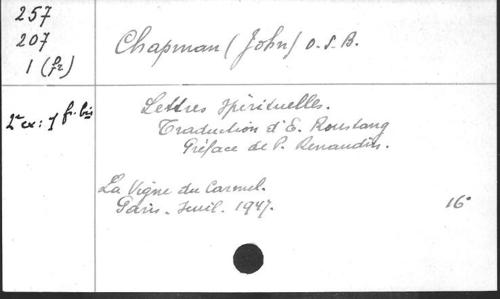 257
207
1 (fr)
Chapman (John) O.S.B.
2e ex: 1 fr. bis
Lettres spirituelles.
Traduction d'E. Roustang
Préface de P. Renaudin.
La Vigne du Carmel.
Paris. Seuil. 1947.
16°